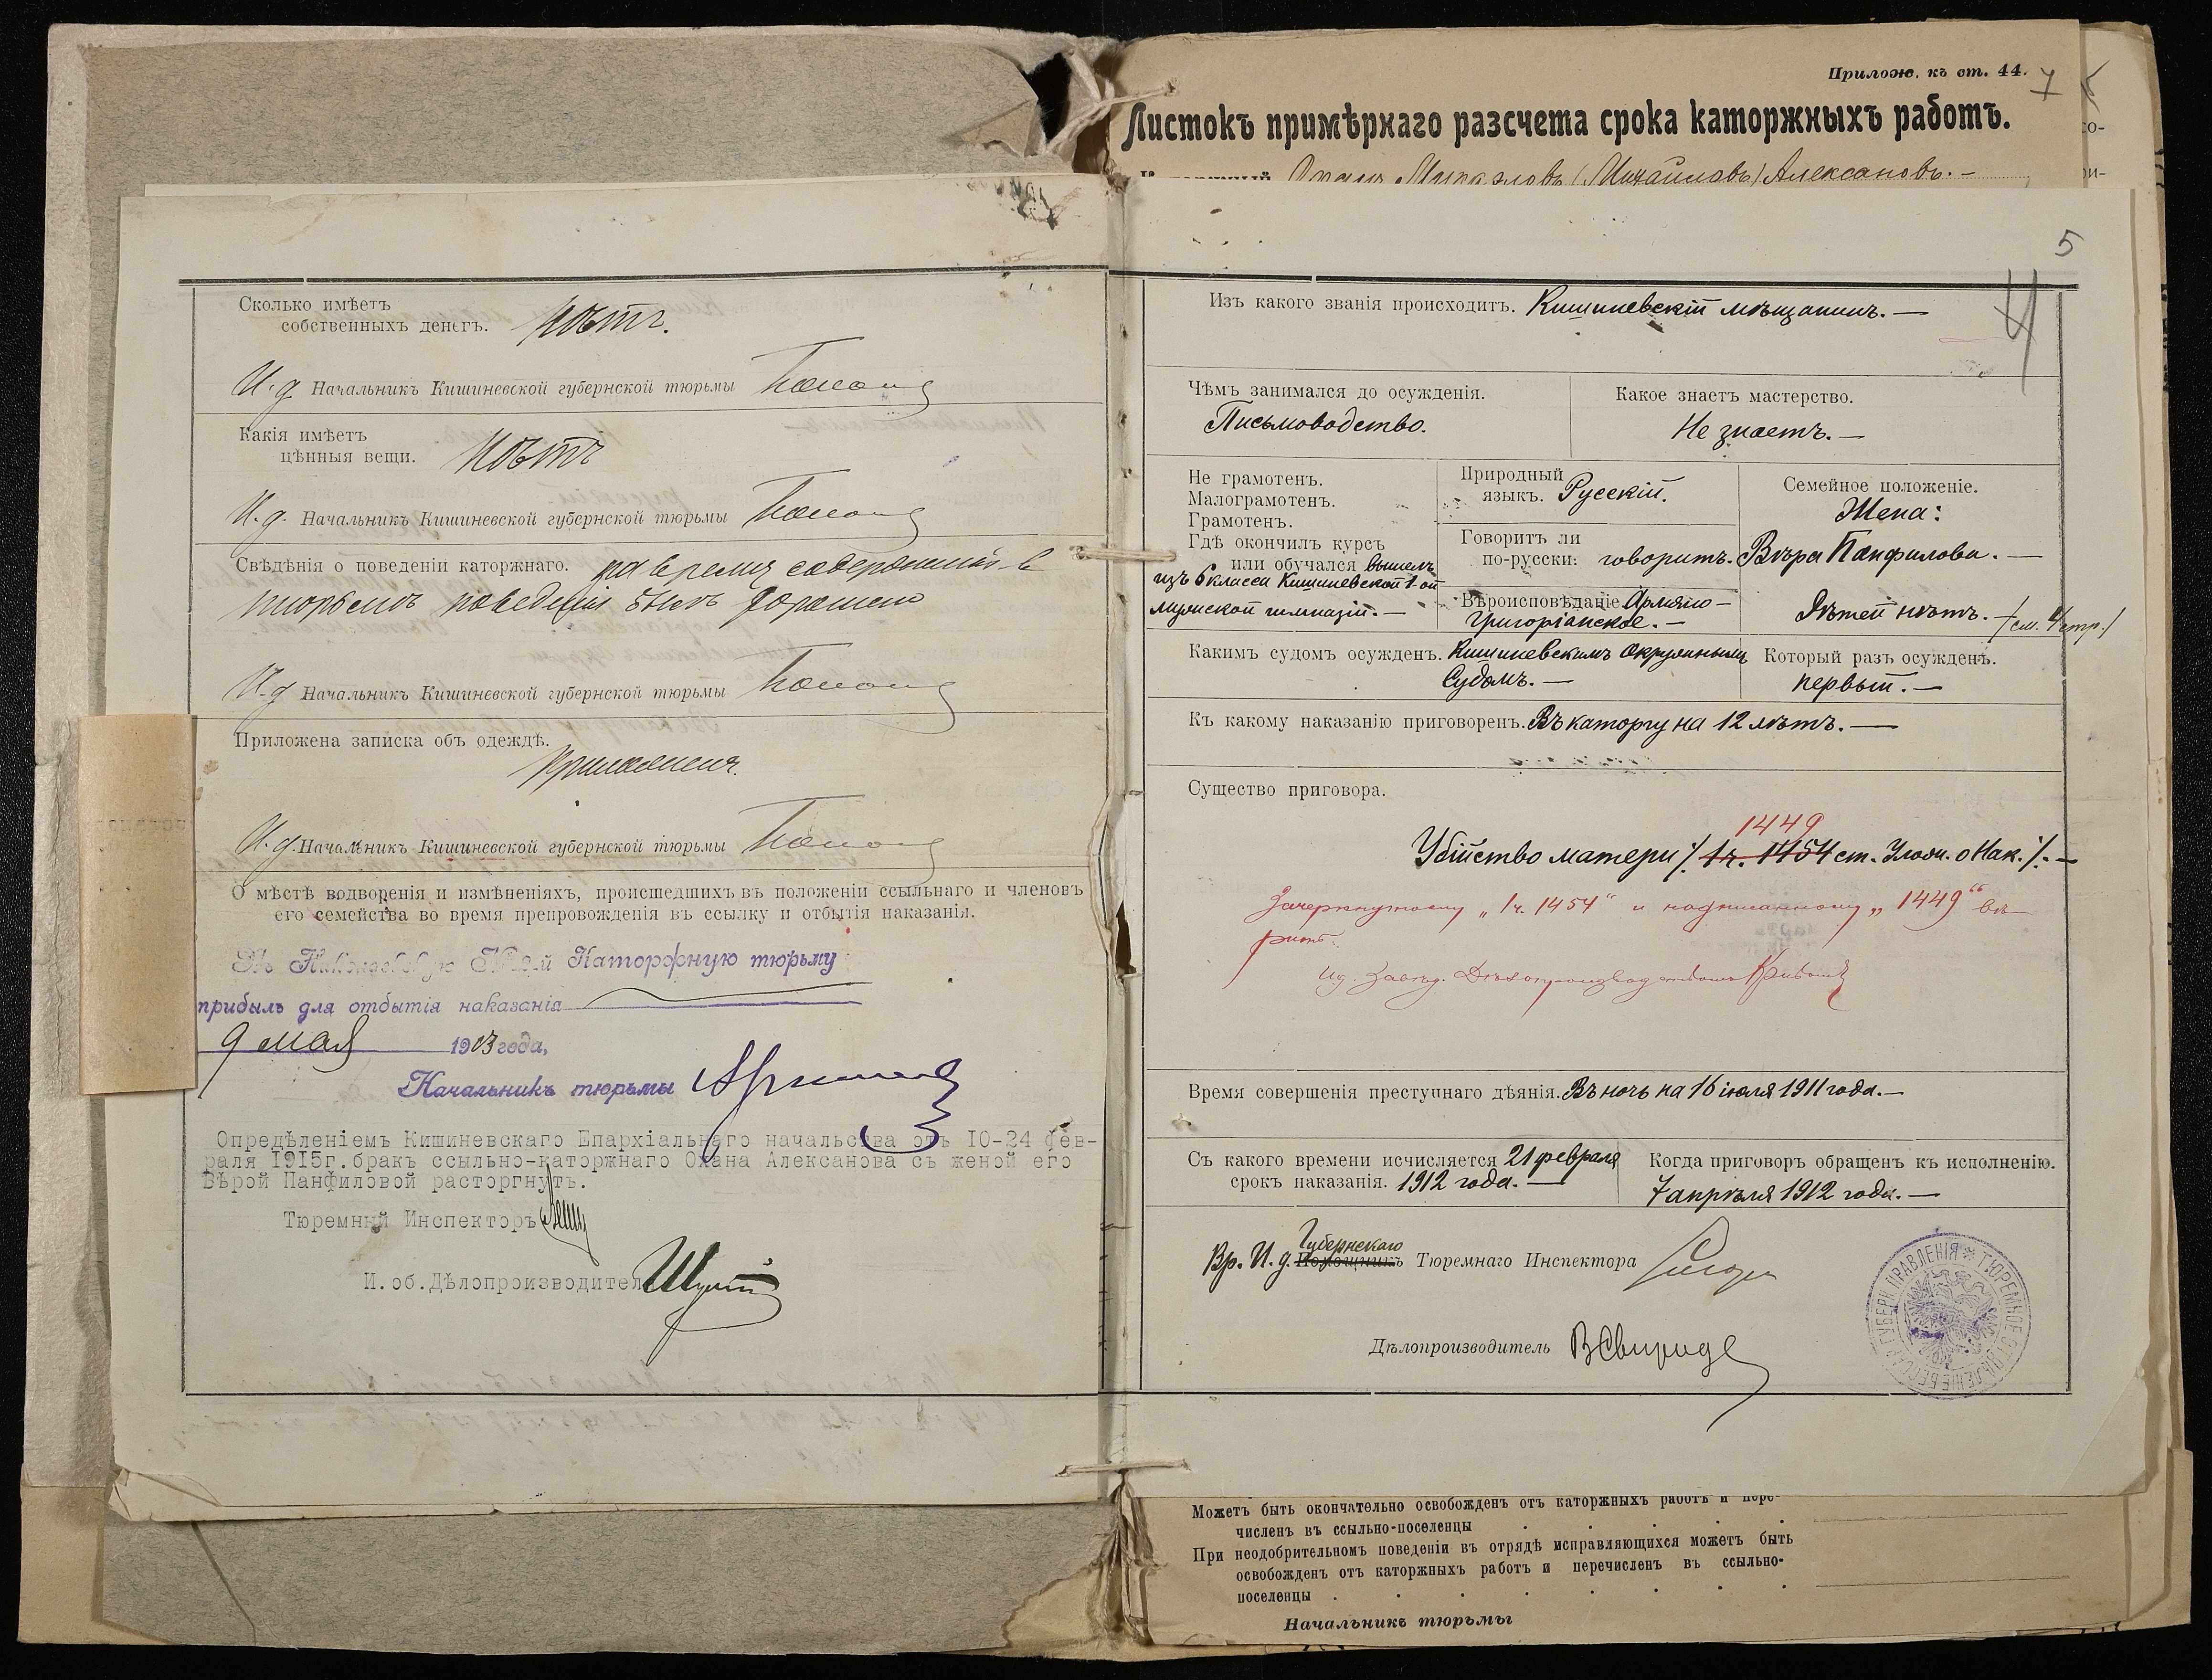 Сколько имѣетъ
собственныхъ денегъ. Нѣтъ.
И. д. Начальникъ Кишиневской губернской тюрьмы
Какія имѣетъ
цѣнныя вещи. Нѣтъ
И. д. Начальникъ Кишиневской губернской тюрьмы
Свѣдѣнія о поведеніи каторжнаго. За время содержанія в
тюрьмѣ поведенія былъ хорошаго
И. д. Начальникъ Кишиневской губернской тюрьмы
Приложена записка объ одеждѣ.
Приложена.
И. д. Начальникъ Кишиневской губернской тюрьмы
О мѣстѣ водворенія и измѣненіяхъ, происшедшихъ въ положеніи ссыльнаго и членовъ
его семейства во время препровожденія въ ссылку и отбытія наказанія.
Въ Каторжную тюрьму
прибылъ для отбытія наказанія
9 мая 1913 года,
Начальникъ тюрьмы
Опредѣленіемъ Кишиневскаго Епархіальнаго начальства отъ 10-24 фев-
раля 1915г. бракъ ссыльно-каторжнаго Охана Алексанова съ женой его
Вѣрой Панфиловой расторгнутъ.
Тюремный Инспекторъ
И. об. Дѣлопроизводителя
Прилож. къ ст. 44.
7
Листокъ примѣрнаго разсчета срока каторжныхъ работъ.
Микаэловъ (Михайловъ) Алексановъ. —
5
4
Изъ какого званія происходитъ. Кишиневскій мѣщанинъ. —
Чѣмъ занимался до осужденія.
Письмоводство.
Какое знаетъ мастерство.
Не знаетъ. —
Не грамотенъ.
Малограмотенъ.
Грамотенъ.
Гдѣ окончилъ курсъ
или обучался вышелъ
изъ 6 класса Кишиневской 1-ой
мужской гимназіи. —
Природный
языкъ. Русскій.
Говоритъ ли
по-русски: говоритъ.
Вѣроисповѣданіе Армяно-
Григоріанское. —
Семейное положеніе.
Жена:
Вѣра Панфилова. —
Дѣтей нѣтъ. — /см. 4 стр./
Какимъ судомъ осужденъ. Кишиневскимъ Окружнымъ
Судомъ. —
Который разъ осужденъ.
первый. —
Къ какому наказанію приговоренъ. Въ каторгу на 12 лѣтъ. —
Существо приговора.
1449
Убійство матери /. 1 ч. 1454 ст. Улож. о Нак. /. —
Зачеркнутому „1 ч. 1454“ и надписанному „1449“ вѣ-
рить.
И. д. Завѣд. Дѣлопроизводствомъ
Время совершенія преступнаго дѣянія. Въ ночь на 16 іюля 1911 года. —
Съ какого времени исчисляется 21 февраля
срокъ наказанія. 1912 года. —
Когда приговоръ обращенъ къ исполненію.
7 апрѣля 1912 года. —
Губернскаго
Вр. И. д. Помощникъ Тюремнаго Инспектора
Дѣлопроизводитель
ТЮРЕМНОЕ ОТДѢЛЕНІЕ БЕССАР. ГУБЕРН. ПРАВЛЕНІЯ
Можетъ быть окончательно освобожденъ отъ каторжныхъ работъ и пере-
численъ въ ссыльно-поселенцы
При неодобрительномъ поведеніи въ отрядѣ исправляющихся можетъ быть
освобожденъ отъ каторжныхъ работъ и перечисленъ въ ссыльно-
поселенцы
Начальникъ тюрьмы